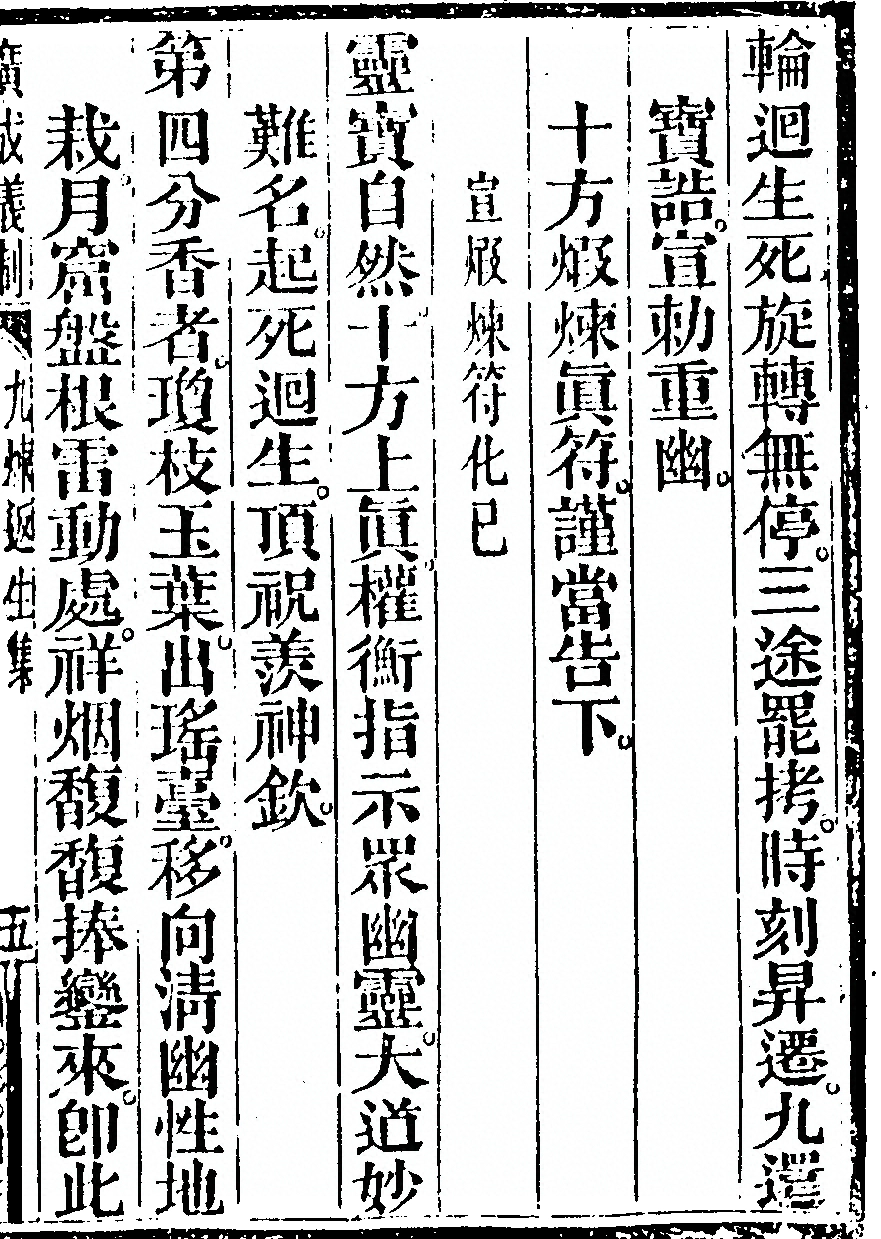 輪迴生死旋轉無停。三途罷拷。時刻昇遷。九還
寶誥。宣勅重幽。
十方煆煉眞符。謹當告下。
宣煆煉符化已
靈寶自然。十方上眞。權衡指示眾幽靈。大道妙
難名。起死迴生。頂祝羨神欽。
第四分香者。瓊枝玉葉。出瑤臺。移向清幽性地
栽。月窟盤根雷動處。祥烟馥馥捧鑾來。卽此
廣成儀制 九煉返生集 五